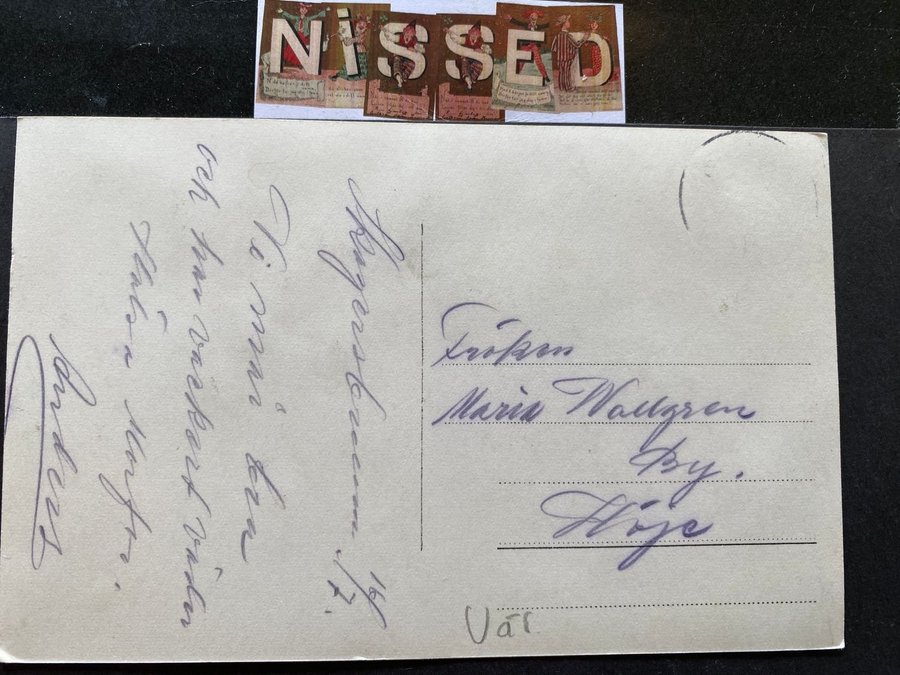 NiSSED
Skagersbrunn 14/7.
Vi mår bra
och har vackert väder
Hälsa Morfar.
Anders
Fröken
Maria Wallgren
By.
Höje
Vär